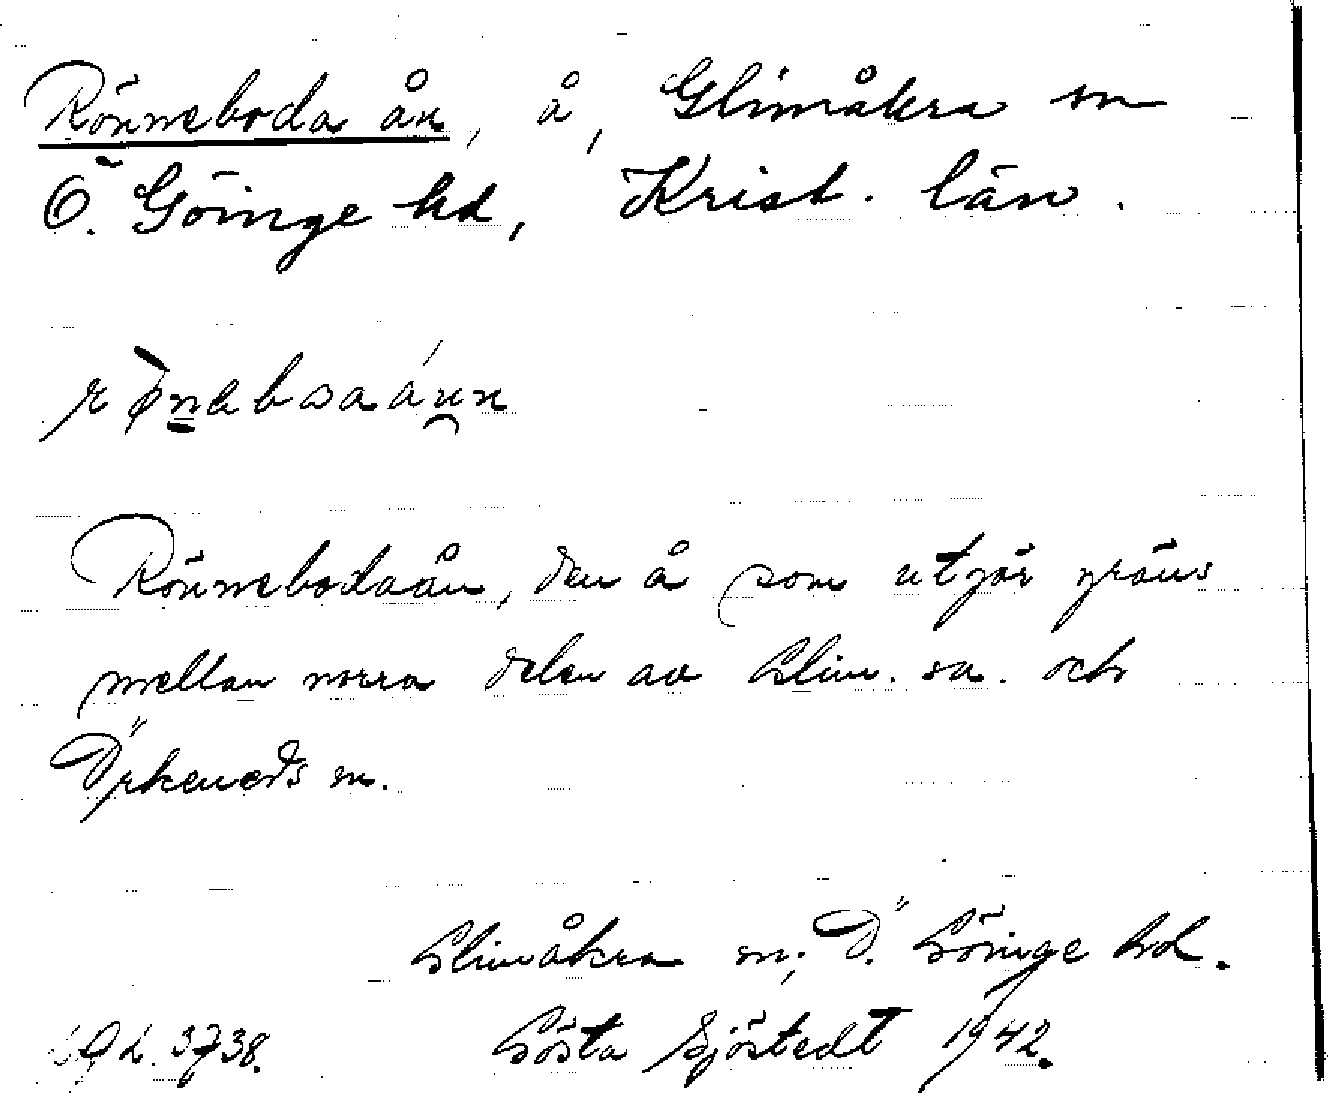 Rönneboda ån, å, Glimåkra sn
Ö. Göinge hd, Krist. län.
Rönnebodaån, den å som utgör gräns
mellan norra delen av Glim. sn. och
Örkeneds sn.
Glimåkra sn, Ö. Göinge hd.
3738. Gösta Sjöstedt 1942.